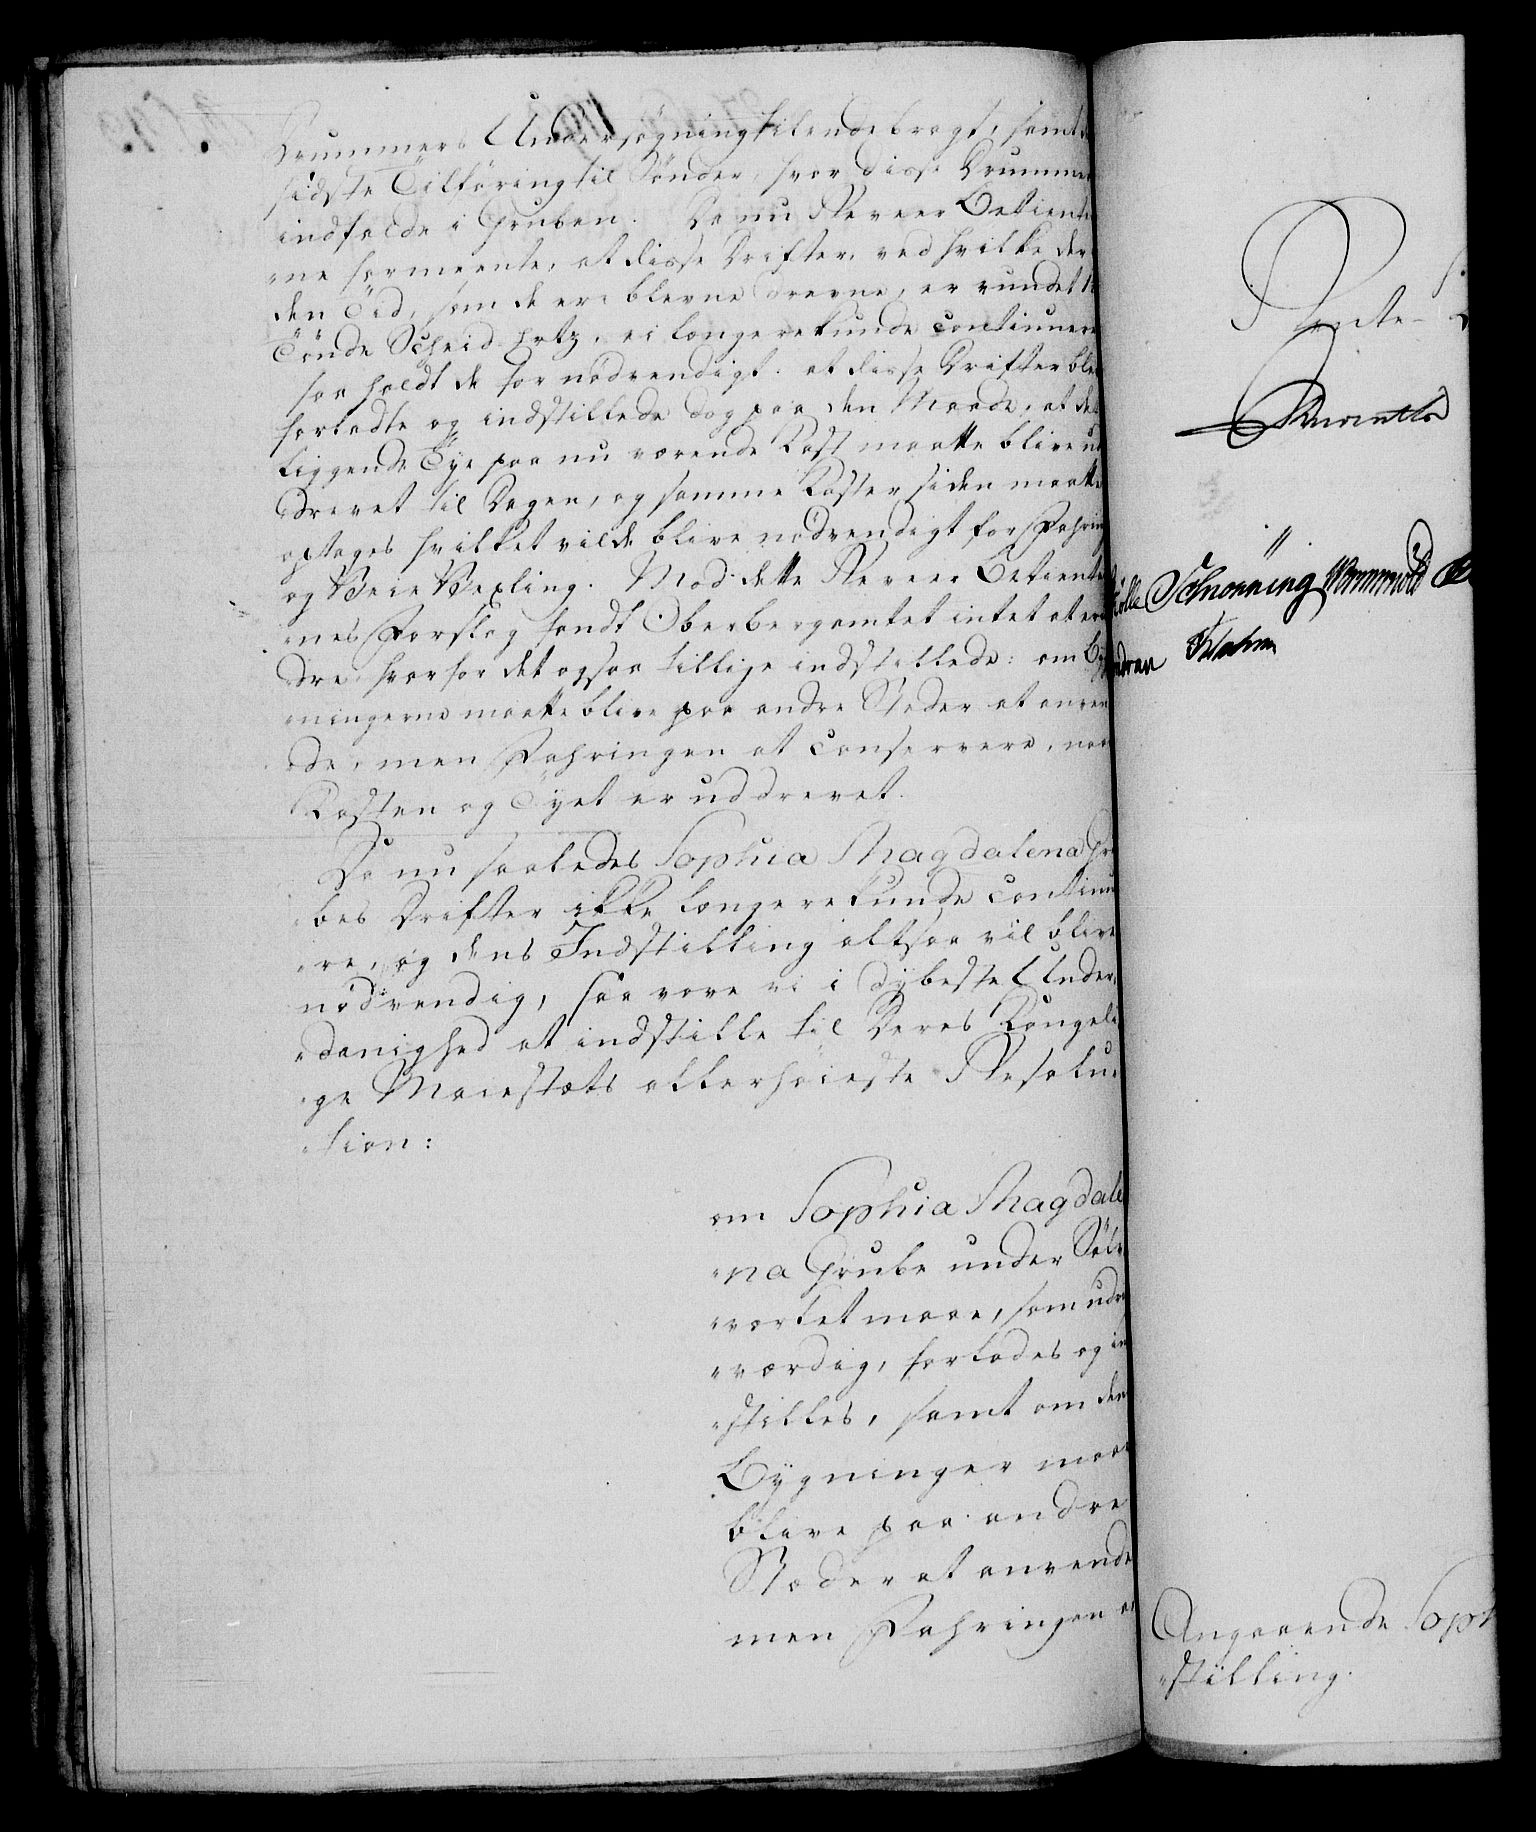 Drummers Undersøgning tilendebragt, samt
sidste Tilføring til Sønder, hvor disse Drummer
indfalde i Gruben. Da nu Reveer Betiente
ne formeente, at disse Drifter, ved hvilke der
den Tid, som de ere blevne drevne, er vundet
Tönde Scheid-Ertz, ei længere kunde continuere
saa holdt de for nödvendigt: at disse Drifter blev
forladte og indstillede dog paa den Maade, at det
liggende Tÿe paa nu værende Kast maatte blive ud
drevet til Dagen, og samme Kaster siden maatte
optages hvilket vilde blive nödvendigt for Fahring
og Veir Vexling. Mod dette Reveer Betiente
nes Forslag fandt Oberbergamtet intet at erin
dre hvorfor det ogsaa tillige indstillede: om Byg
ningerne maatte blive paa andre Stæder at anven
de, men Fahringen at conservere, naar
Kasten og Tÿet er uddrevet.
Da nu saaledes Sophia Magdalena Gru
bes Drifter ikke længere kunde continu
re, og dens Indstilling altsaa vil blive
nödvendig, saa vove vi i dybeste Under
danighed at indstille til Deres Kongeli
ge Maiestæts allerhöieste Resolu
tion:
om Sophia Magdale
na Grube under Sølv
værket maae, som udriv
værdig, forlades og ind
stilles, samt om dens
Bÿgninger maae
blive paa andre
Stæder at anvende
men Fahringen at
Rente-
Schnonning
Angaaende Soph
stilling.